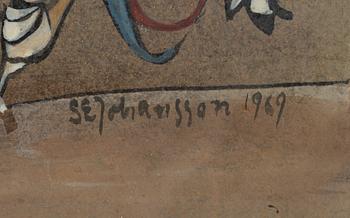 SEJohansson 1969